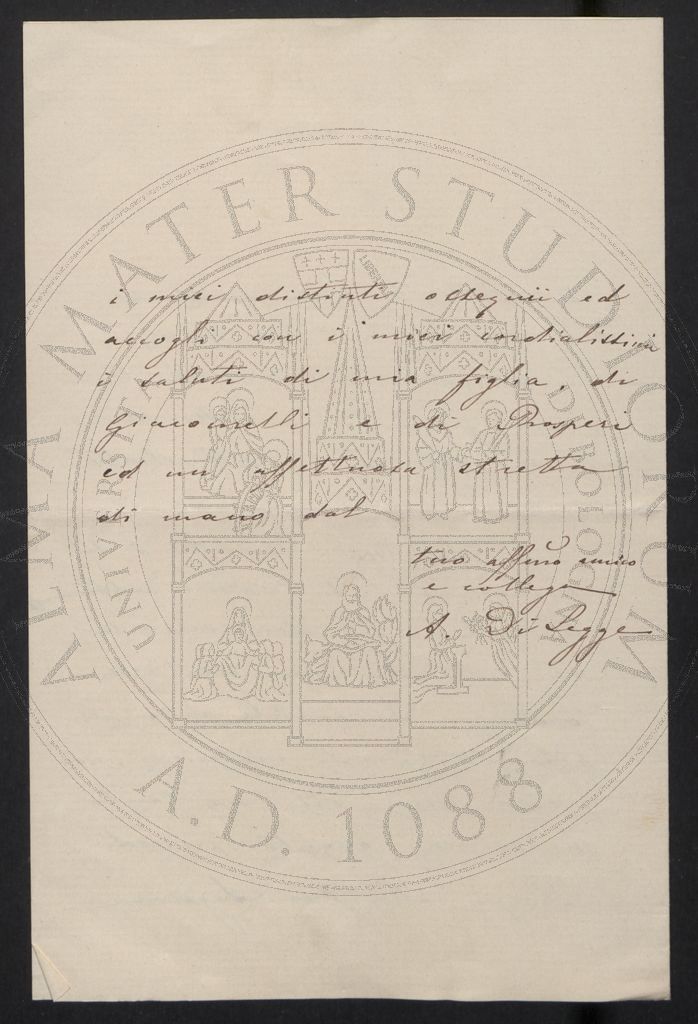 i miei distinti ossequii ed
accogli con i miei cordialissimi
i saluti di mia figlia, di
Giacomelli e di Prosperi
ed un affettuosa stretta
di mano dal
tuo affmo amico
e collega
A. Di Legge
ALMA MATER STUDIORUM
A.D. 1088
LIBERTAS